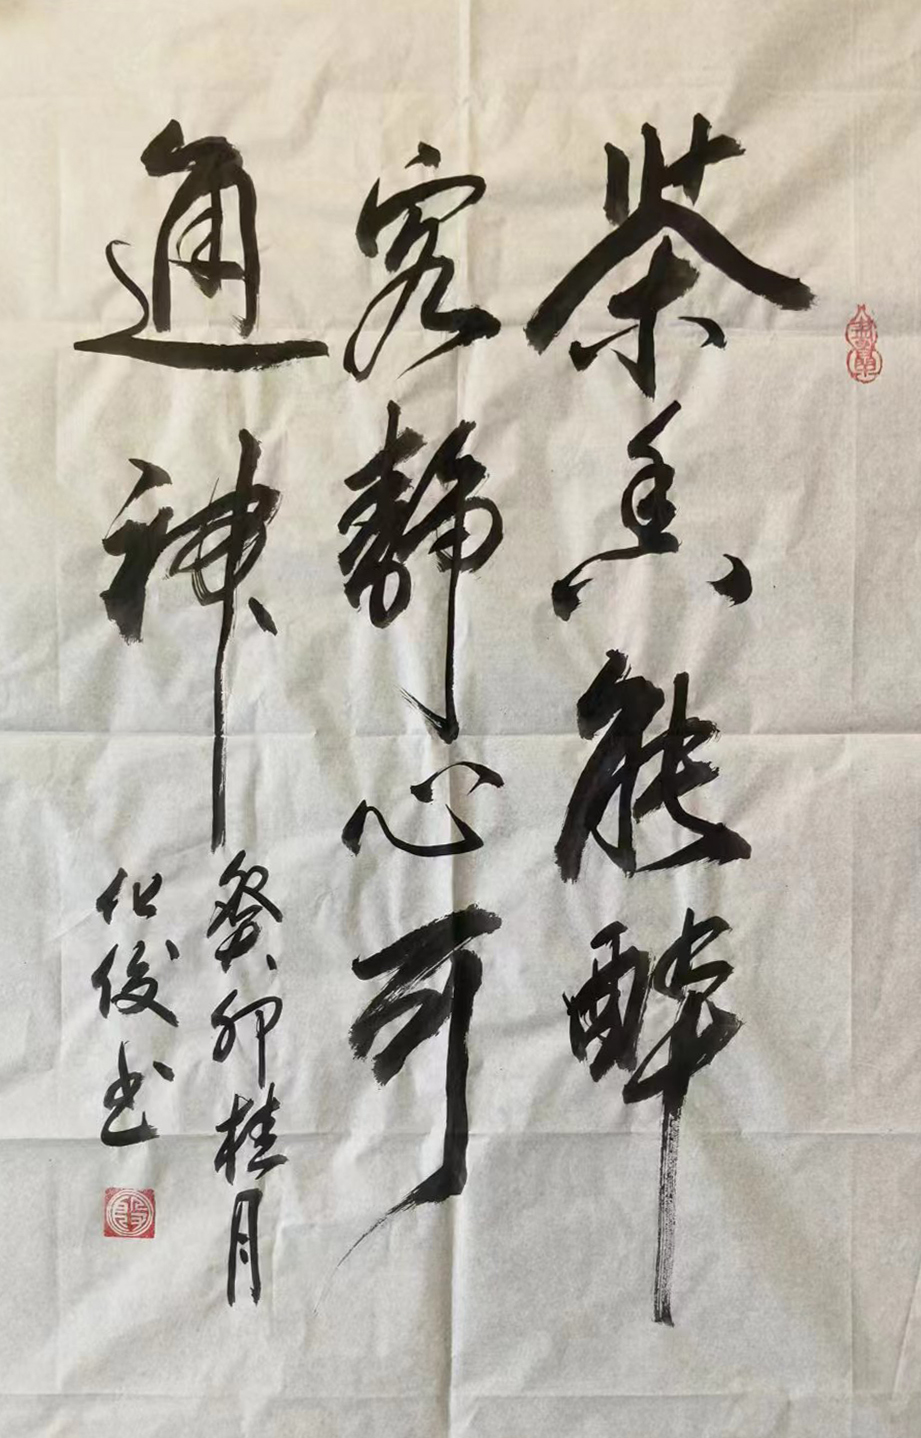 茶香能醉
客静心可
通神
癸卯桂月
化俊书